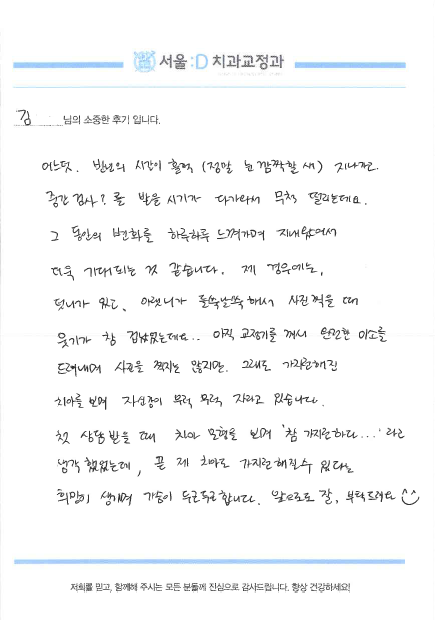 서울:D 치과교정과
김 님의 소중한 후기 입니다.
어느덧. 반년의 시간이 훌쩍 (정말 눈 깜짝할 새) 지나가고.
중간 검사? 를 받을 시기가 다가와서 무척 떨리는데요.
그 동안의 변화를 하루하루 느껴가며 지내왔어서
더욱 기대되는 것 같습니다. 제 경우에는,
덧니가 있고, 아랫니가 들쑥날쑥해서 사진찍을 때
웃기가 참 겁났었는데요.. 아직 교정기를 껴서 완전한 미소를
드러내며 사진을 찍지는 않지만. 그래도 가지런해진
치아를 보며 자신감이 무럭 무럭 자라고 있습니다.
첫 상담받을 때 치아 모형을 보며 '참 가지런하다...' 라고
생각 했었는데, 곧 제 치아도 가지런해질수 있다는
희망이 생기며 가슴이 두근두근합니다. 앞으로도 잘, 부탁드려요
저희를 믿고, 함께해 주시는 모든 분들께 진심으로 감사드립니다. 항상 건강하세요!